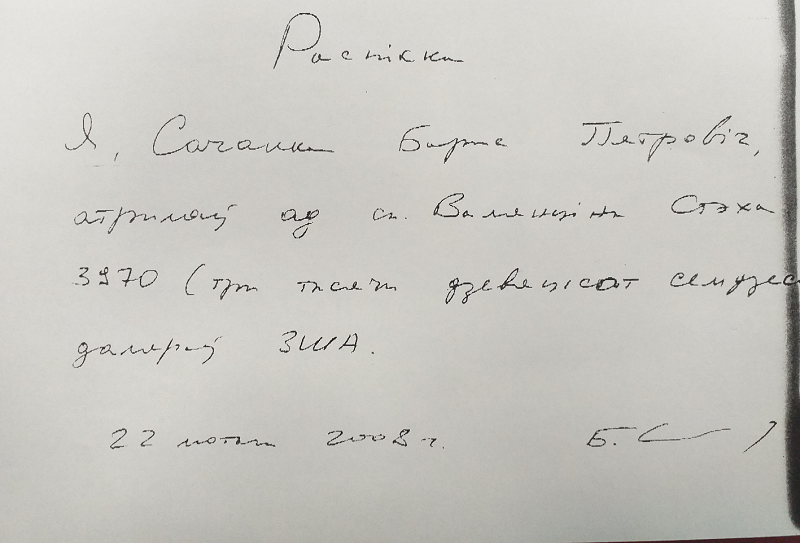 Распіска
Я, Сачанка Барыс Пятровіч,
атрымаў ад сп. Валянціны Стэха
3970 (тры тысячы дзевяцсот семдзес
даляраў ЗША.
22 лютага 2008 г. Б. С